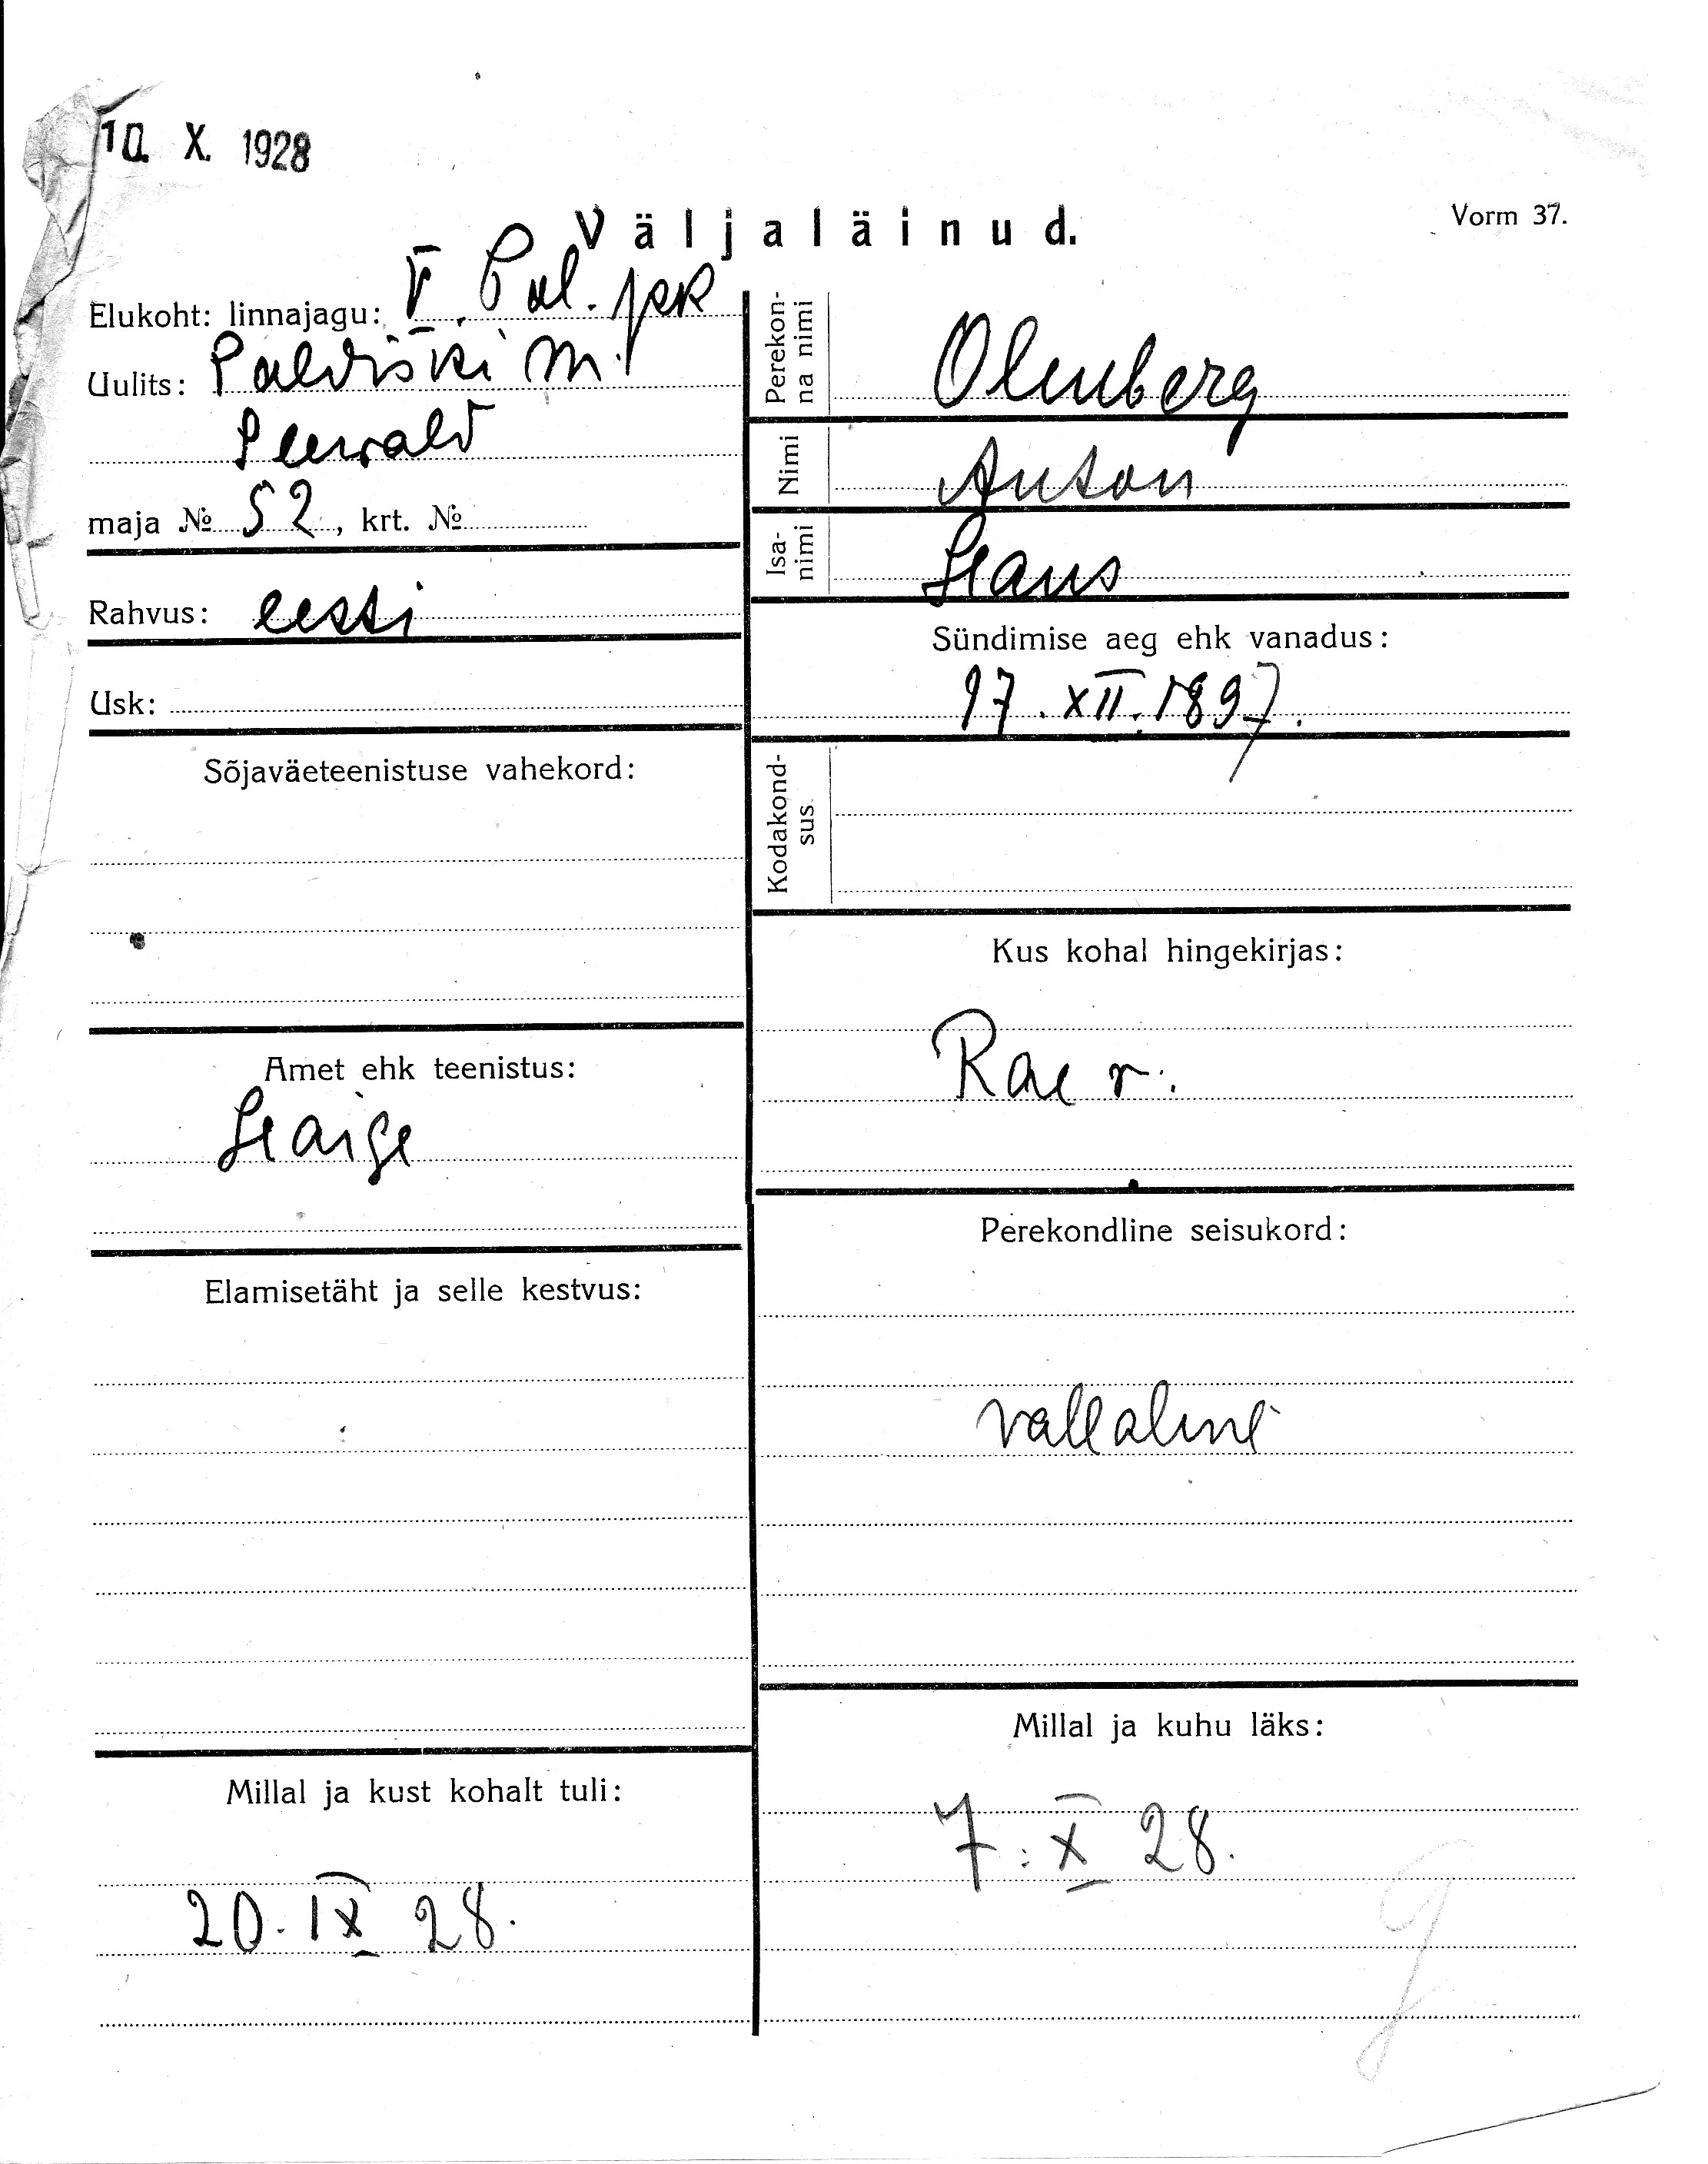 10. X. 1928
Väljaläinud.
Vorm 37.
Elukoht: linnajagu: V. Pol. jsk
Uulits: Paldiski m.
Seevald
maja № 52, krt. №
Rahvus: eesti
Usk:
Sõjaväeteenistuse vahekord:
Amet ehk teenistus:
Haige
Elamisetäht ja selle kestvus:
Millal ja kust kohalt tuli:
20. IX 28.
Perekon-
na nimi
Olenberg
Nimi Anton
Isa-
nimi
Hans
Sündimise aeg ehk vanadus:
17. XII. 1897.
Kodakond-
sus.
Kus kohal hingekirjas:
Rae v.
Perekondline seisukord:
vallaline
Millal ja kuhu läks:
7. X 28.